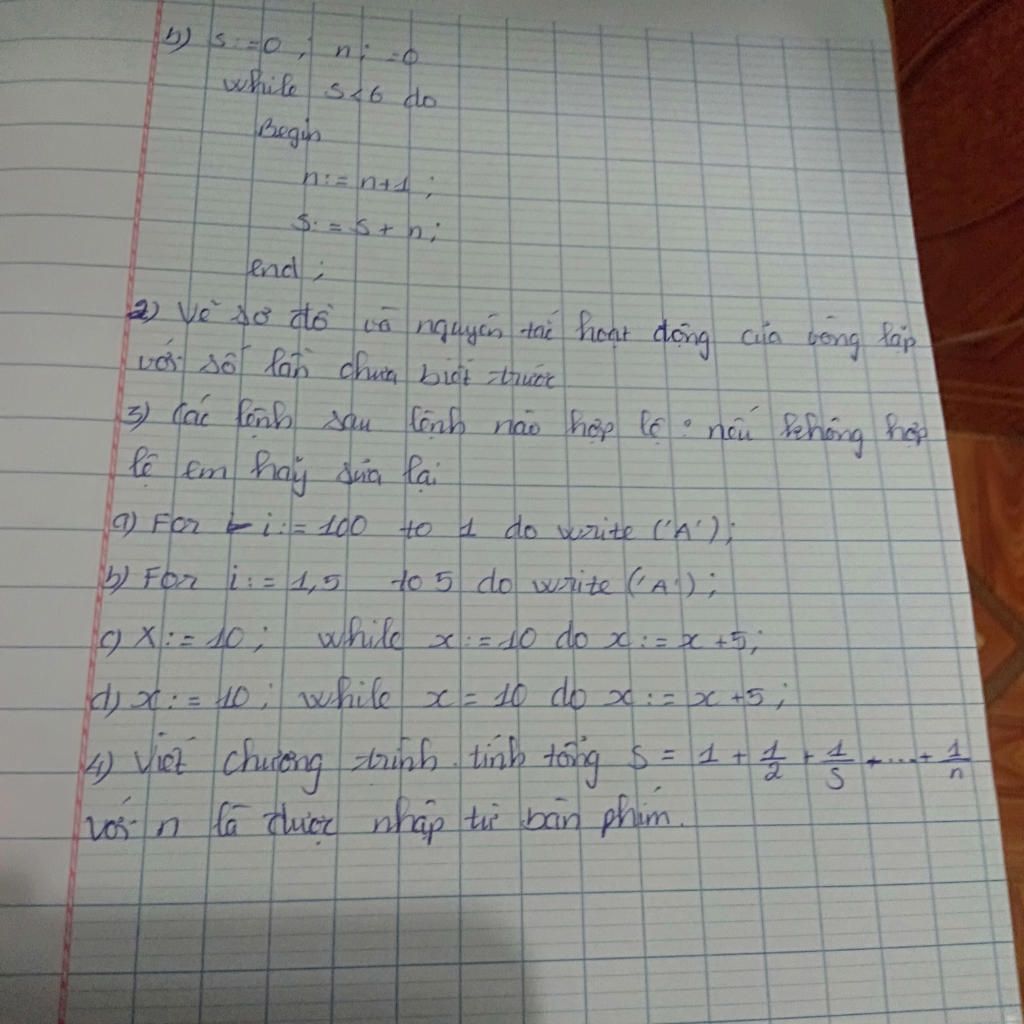 b) s:=0; n:=0
while s<6 do
Begin
n:= n+1;
s:= s+ n;
end;
2) Vẽ sơ đồ và nguyên tắc hoạt động của vòng lặp
với số lần chưa biết trước
3) Các lệnh sau lệnh nào hợp lệ: nếu không hợp
lệ em hãy sửa lại
a) For i:= 100 to 1 do write ('A');
b) For i:= 1,5 to 5 do write ('A');
c) X:= 10; while x:=10 do x:= x+5;
d) x:= 10; while x=10 do x:= x+5;
4) Viết chương trình tính tổng S = 1 + 1/2 + 1/S +...+ 1/n
với n là được nhập từ bàn phím.